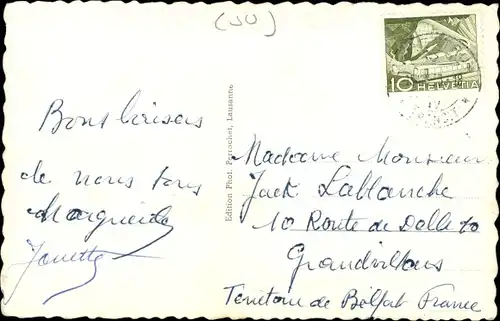 (JU)
10 HELVETIA
Bons baisers
de nous tous
Marguerite
Edition Phot. Perrochet, Lausanne
Madame Monsieur
Jack Lablanche
10 Route de Delle 10
Grandvillars
Territoire de Belfort France